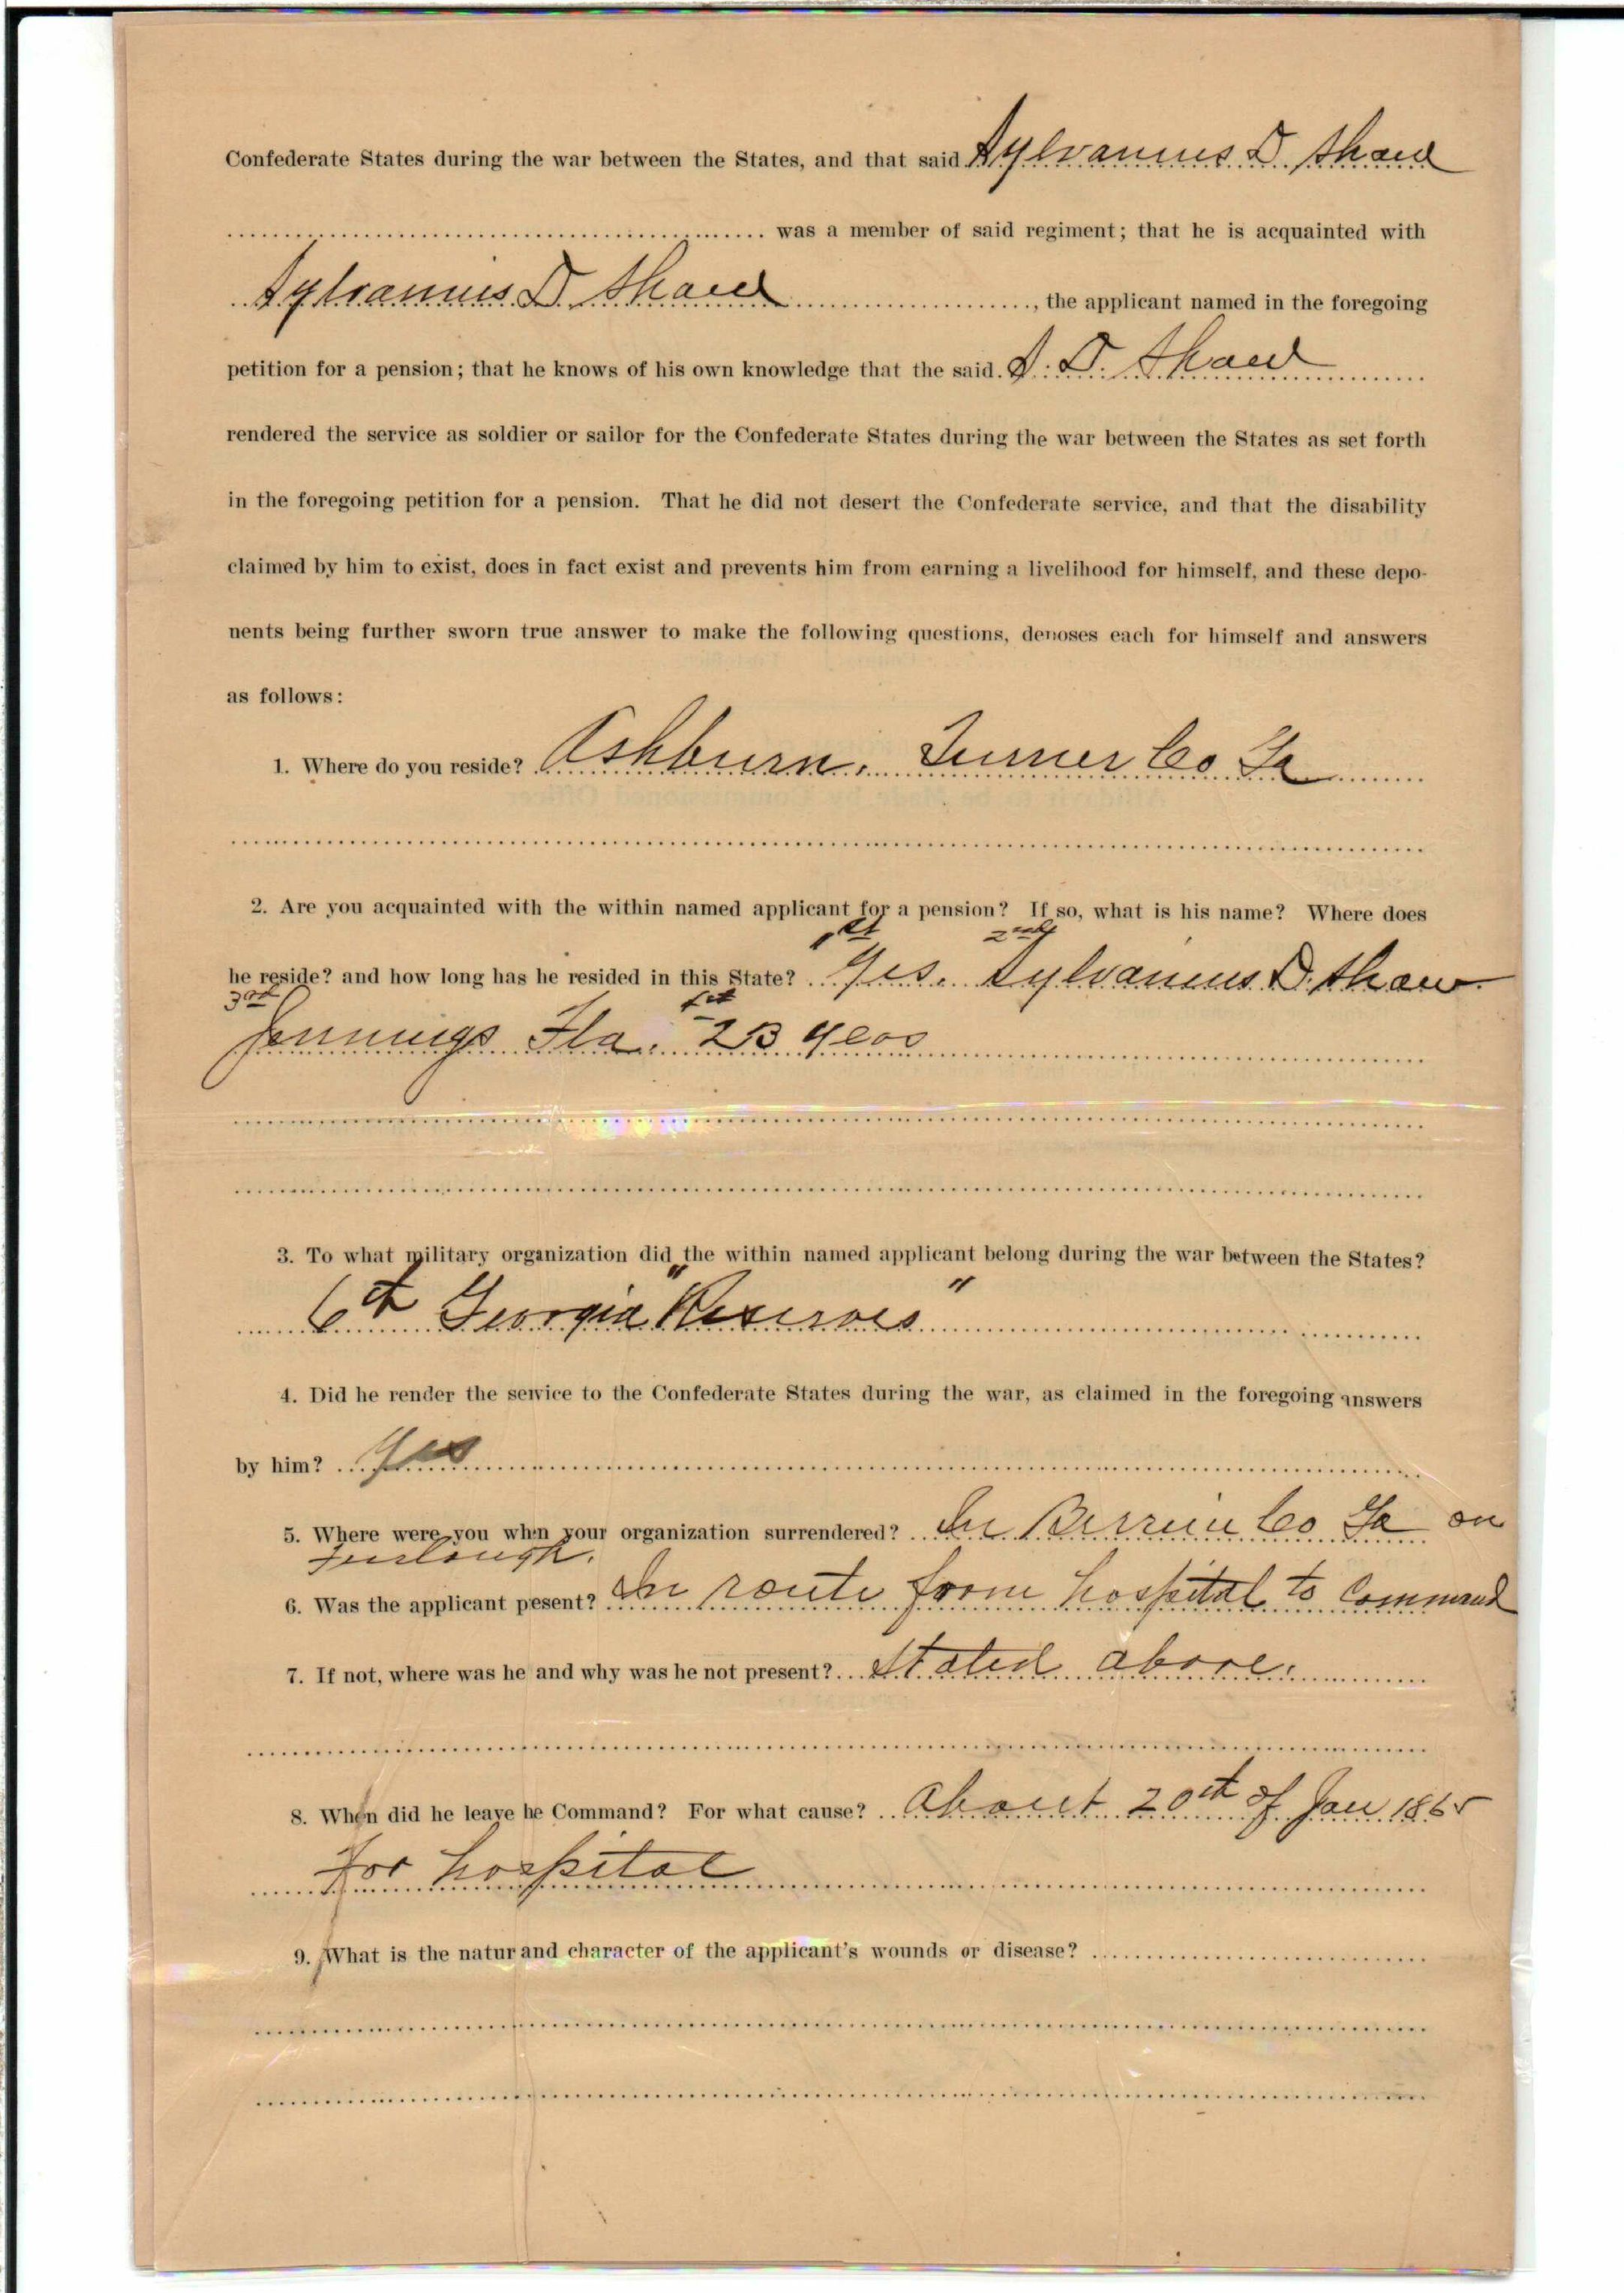 Confederate States during the war between the States, and that said Sylvanius D. Shaw
was a member of said regiment; that he is acquainted with
Sylvanius D. Shaw, the applicant named in the foregoing
petition for a pension; that he knows of his own knowledge that the said. S. D. Shaw
rendered the service as soldier or sailor for the Confederate States during the war between the States as set forth
in the foregoing petition for a pension. That he did not desert the Confederate service, and that the disability
claimed by him to exist, does in fact exist and prevents him from earning a livelihood for himself, and these depo-
nents being further sworn true answer to make the following questions, deposes each for himself and answers
as follows:
1. Where do you reside? Ashburn. Turner Co Ga
2. Are you acquainted with the within named applicant for a pension? If so, what is his name? Where does
1st 2nd
he reside? and how long has he resided in this State? Yes. Sylvanius D. Shaw.
3rd
Jennings Fla. 23 years
3. To what military organization did the within named applicant belong during the war between the States?
6th Georgia "Reserves"
4. Did he render the service to the Confederate States during the war, as claimed in the foregoing answers
by him? Yes
5. Where were you when your organization surrendered? In Berrien Co Ga on
furlough.
6. Was the applicant present? In route from hospital to Command
7. If not, where was he and why was he not present? Stated above.
8. When did he leave he Command? For what cause? About 20th of Jan 1865
For hospital
9. What is the natur and character of the applicant's wounds or disease?